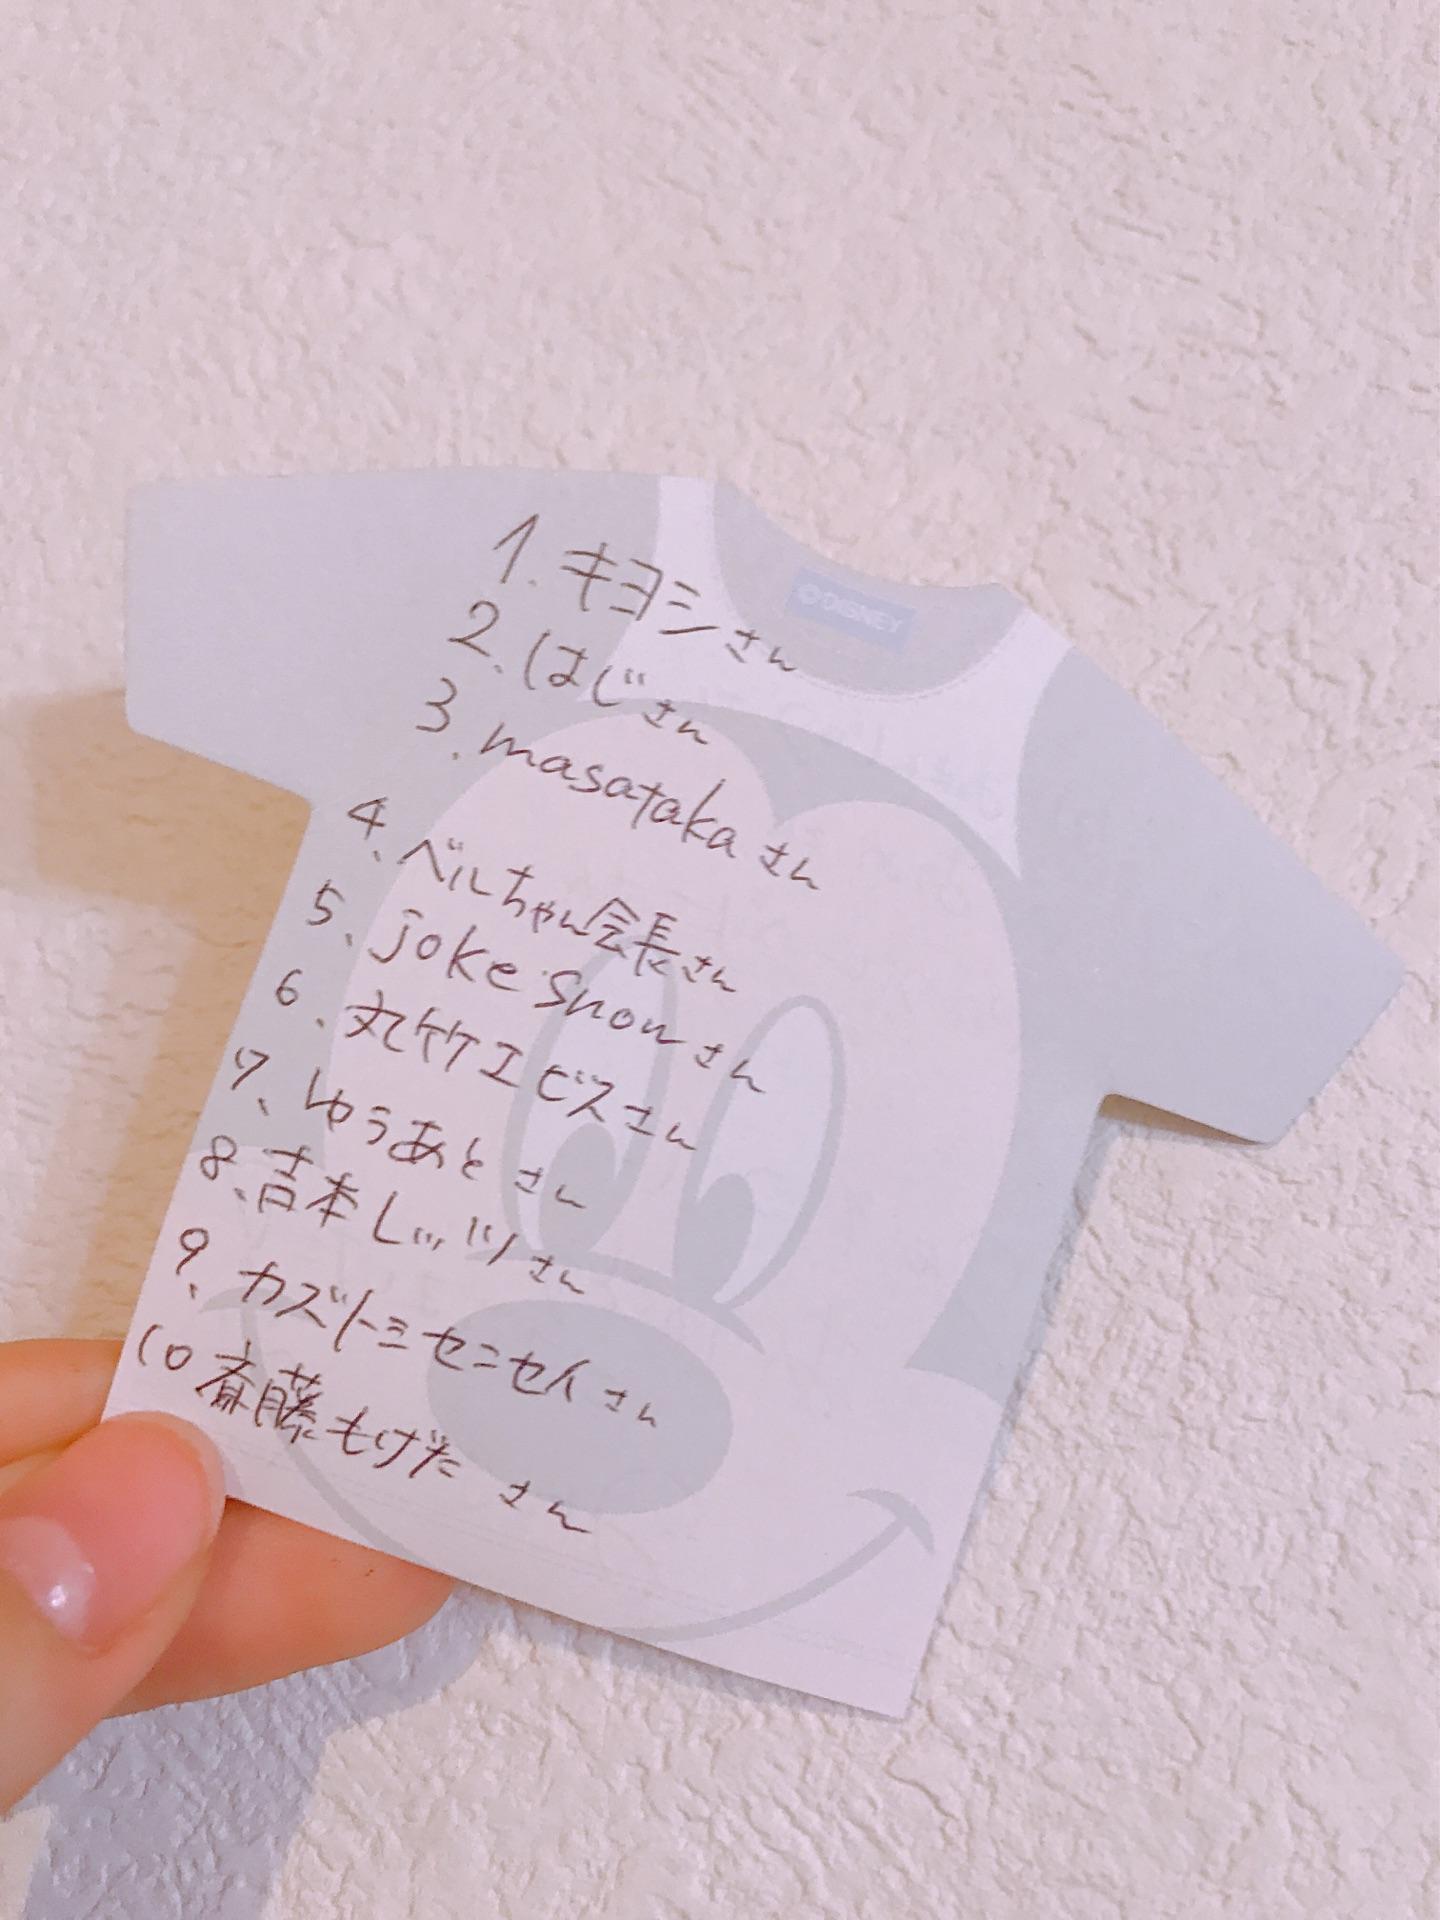 ©DISNEY
1. キヨシさん
2. はじさん
3. masatakaさん
4. ベルちゃん会長さん
5. joke snowさん
6. 丸竹エビスさん
7. ゆうあとさん
8. 吉本レッツさん
9. カズトミセニセイさん
10 斎藤もげたさん